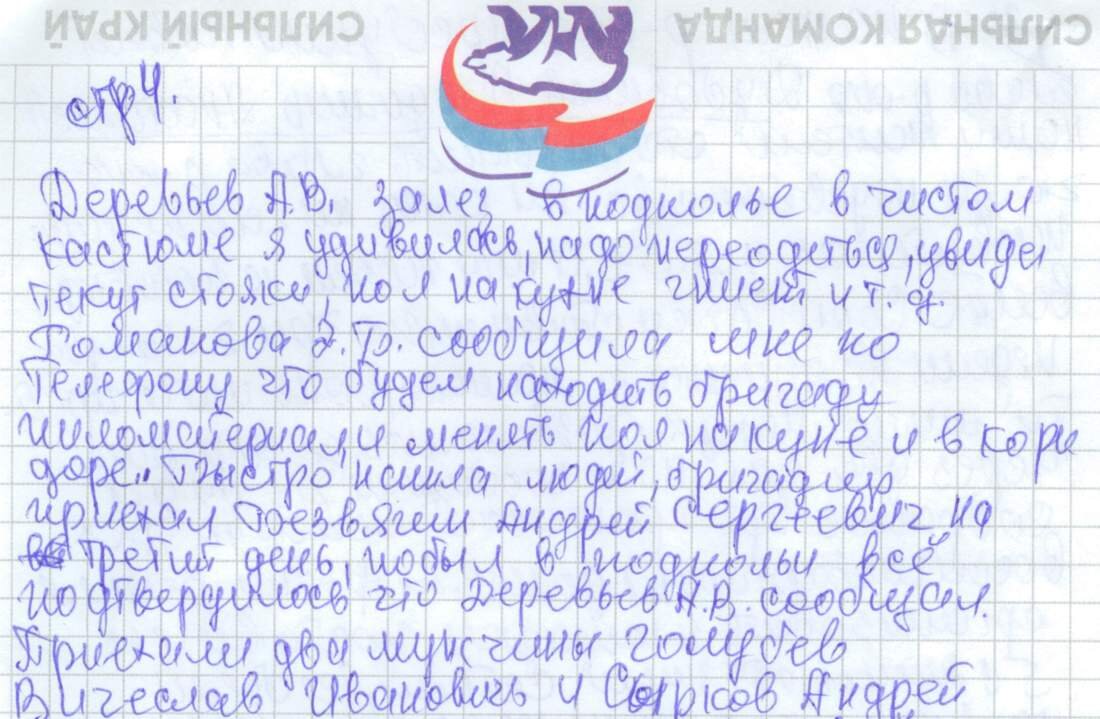 СИЛЬНАЯ КОМАНДА СИЛЬНЫЙ КРАЙ
стр 4.
Деревьев А.В. залез в подполье в чистом
кастюме я удивилась, надо переодиться, увидел
текут стояки, пол на кухне гниет и т.д.
Романова З.Б. сообщила мне по
телефону что будем находить бригаду
пиломатериал, и менять пол на куне и в кори
доре.. Быстро нашла людей, бригадир
приехал Андрей Сергеевич на
третий день, побыл в подпольи всё
подтвердилось что Деревьев А.В. сообщил.
Приехали два мужчины Голубев
Вичеслав Ивановичь и Сырков Андрей